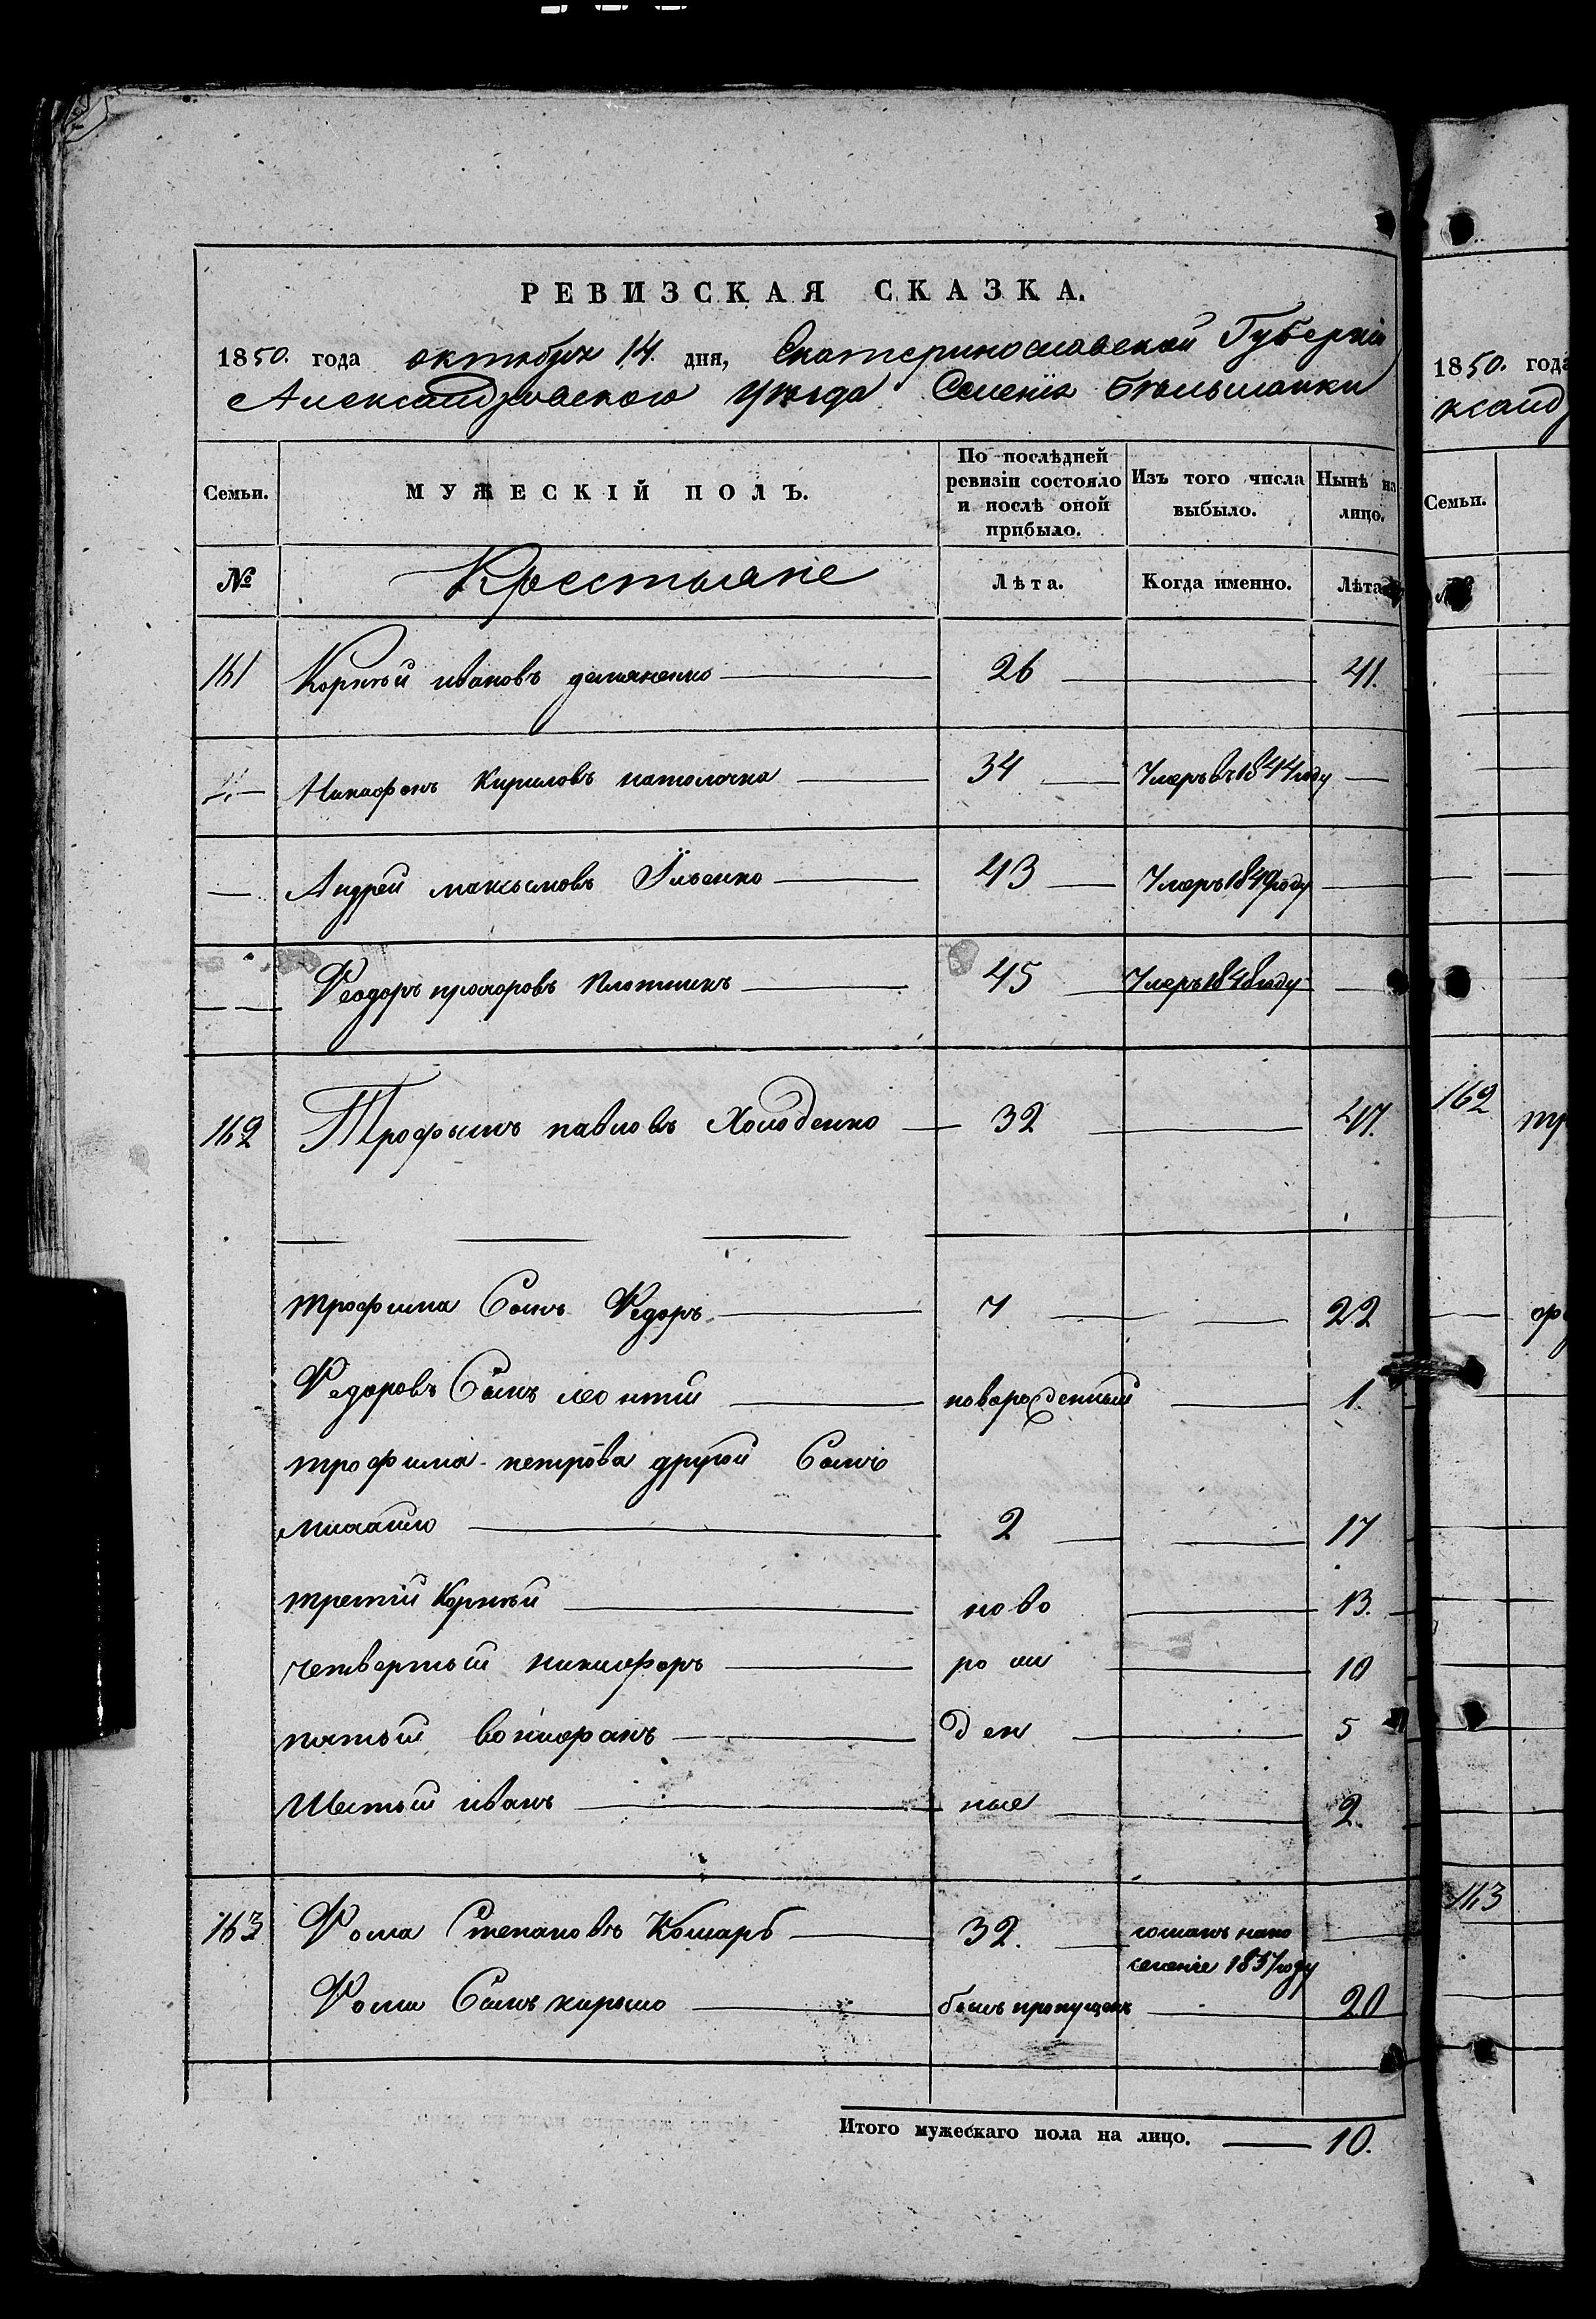 РЕВИЗСКАЯ СКАЗКА.
1850. года октября 14. дня, Екатеринославской Губерніи
Александровского уѣзда Селенія Бѣльманки
Семьи.
МУЖЕСКІЙ ПОЛЪ.
По послѣдней ревизіи состояло и послѣ оной прибыло.
Изъ того числа выбыло.
Нынѣ на лицо.
№ Крестьяне Лѣта. Когда именно. Лѣта
161 Корнѣй ивановъ демяненко 26 41.
Кириловъ 34 Умеръ въ 1844 году
Андрей максымовъ Ильенко 43 Умеръ 1849 году
Феодоръ прохоровъ Плотникъ 45 Умеръ 1848 году
162 Трофымъ павловъ Холоденко 32 47.
трофима Сынъ Федоръ 7 22
Федоровъ Сынъ леонтій новорожденный 1.
трофима петрова другой Сынъ
михайло 2 17
третій Корнѣй ново 13.
четвертый никифоръ рож 10
пятый ден 5
Шестый иванъ ные 2.
163 Фома Степановъ Комаръ 32. сосланъ на по
селеніе 1837 году
Фомы Сынъ кирыло былъ пропущенъ 20
Итого мужескаго пола на лицо. 10.
1850. года
ксанд
Семьи.
№
162 тр
163